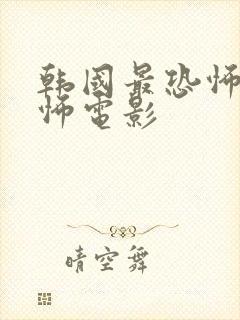 韩國最恐怖
怖電影
晴空舞